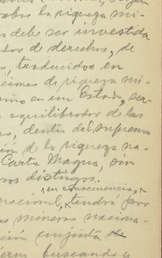 sobre la riqueza mi-
debe ser investida
dor de derechos, de
, traducidos en
de riqueza mi-
en un Estado, ser-
equilibrador de las
, dentro del supremo
ción de la riqueza na-
Carta Magna, sin
distingos.
en consecuencia,
nacional, tendrá
mineras naciona-
ción conjunta
buscando u